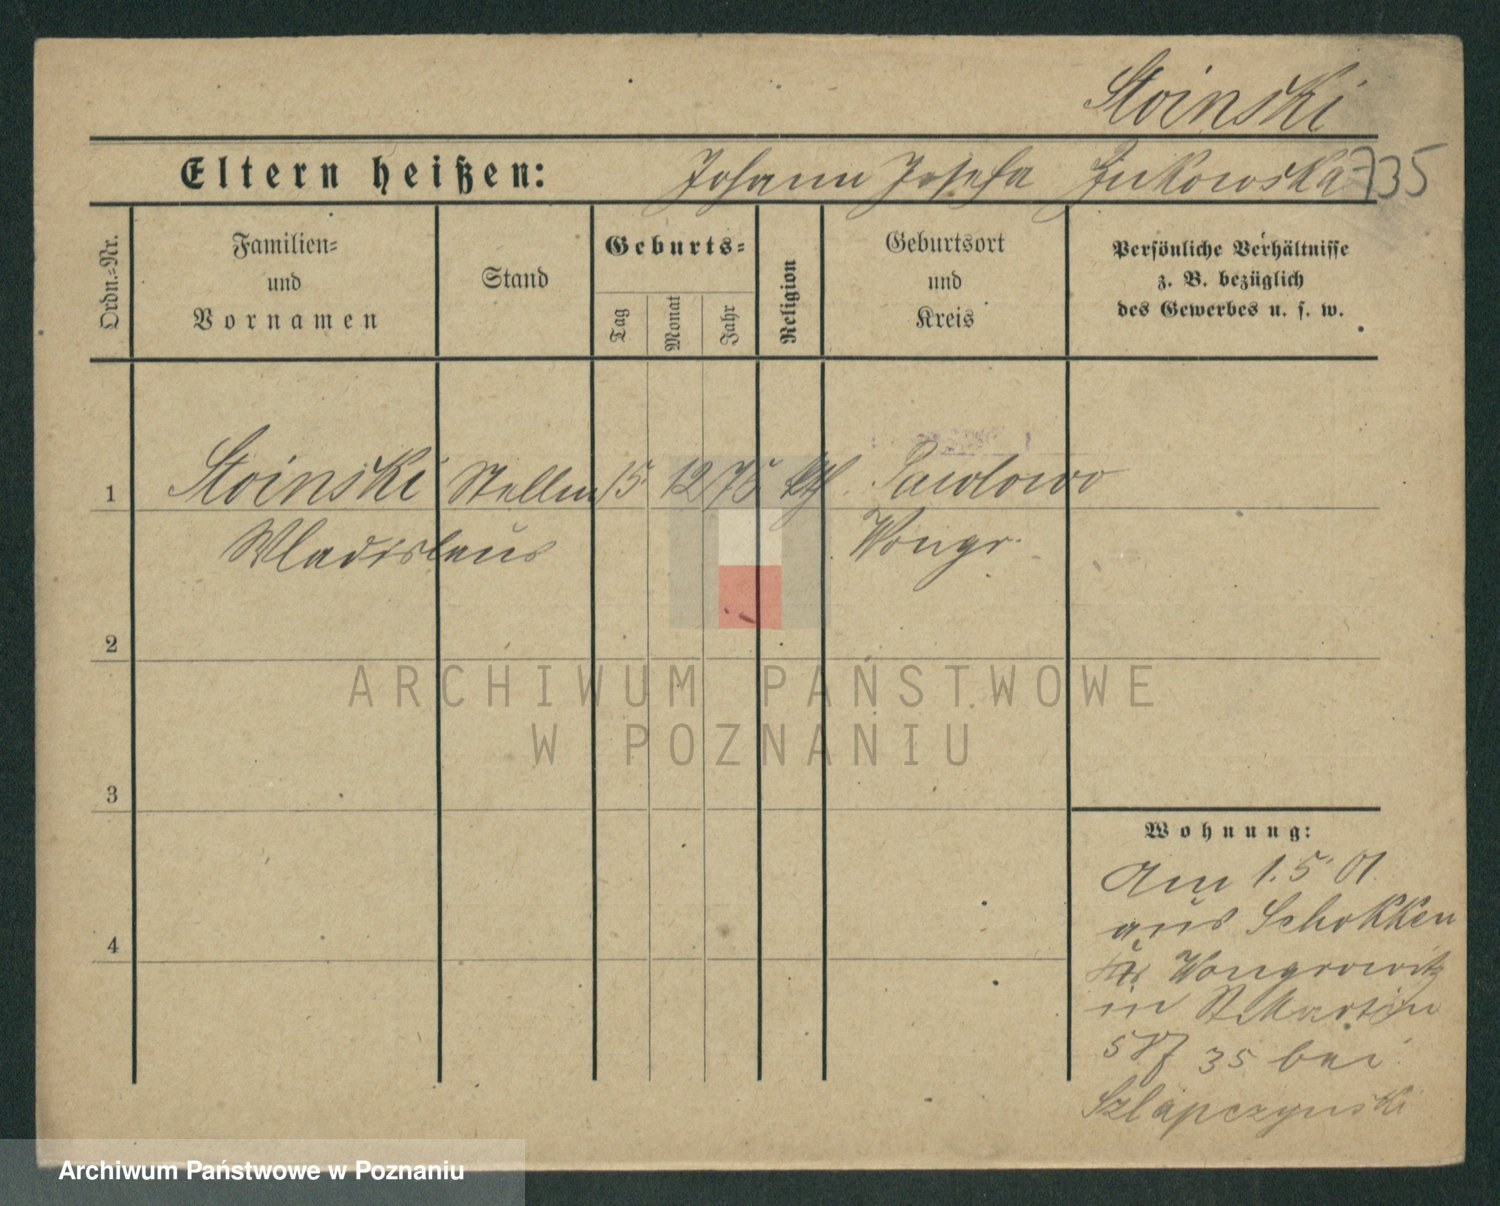 Stoinski
Eltern heißen: Johann Josefa Zukowska 735
Ordn.=Nr.
Familien=
und
Vornamen
Stand
Geburts=
Tag
Monat
Jahr
Religion
Geburtsort
und
Kreis
Persönliche Verhältnisse
z. B. bezüglich
des Gewerbes u. s. w.
1 Stoinski Stellm 15 12 75 kth. Pawlowo
Wladislaus Wongr.
2
3
4
ARCHIWUM PAŃSTWOWE
W POZNANIU
Wohnung:
Am 1.5 01
aus Schokken
Wongrowitz
in St Martin
35 bei
Szlapczynski
Archiwum Państwowe w Poznaniu